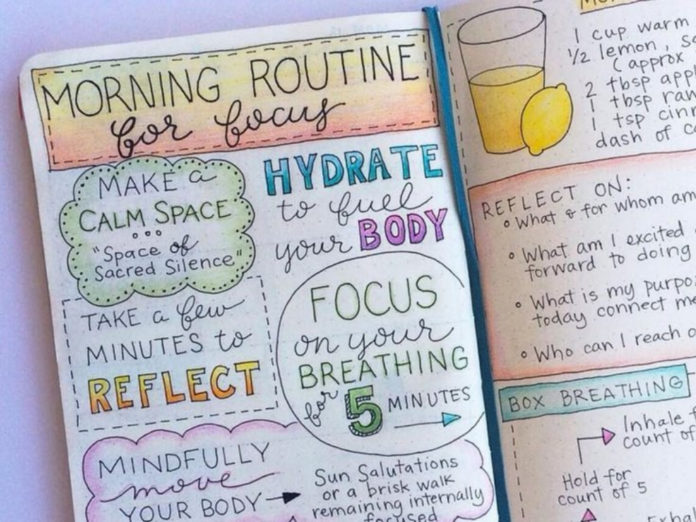 MORNING ROUTINE
for focus
MAKE a
CALM SPACE
"Space of
Sacred Silence"
HYDRATE
to fuel
your BODY
TAKE a few
MINUTES to
REFLECT
FOCUS
on your
BREATHING
for 5 MINUTES
MINDFULLY
move
YOUR BODY
Sun Salutations
or a brisk walk
remaining internally
focused
1 cup warm
1/2 lemon,
(approx
2 tbsp
1 tbsp
1 tsp
dash of
REFLECT ON:
• What & for whom am
• What am I excited
forward to doing
• What is my
today connect
• Who can I reach
BOX BREATHING
Inhale
count of
Hold for
count of 5